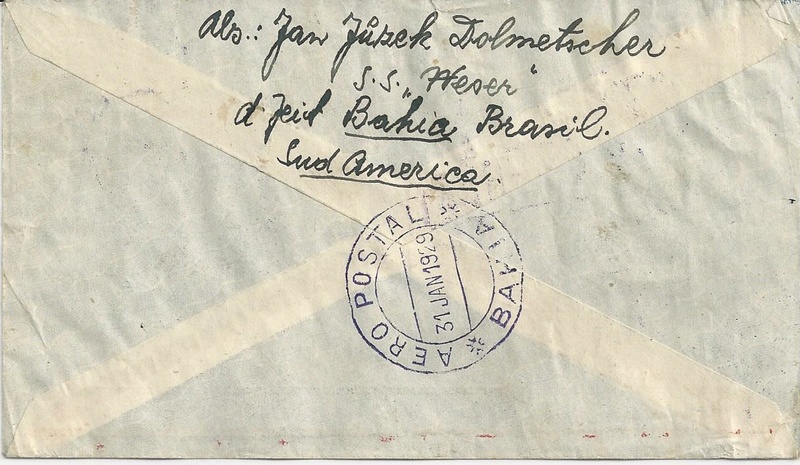 Abs.: Jan Jůzek Dolmetscher
S.S. „Weser"
d Zeit Bahia Brasil.
Sud America.
AERO POSTAL * BAHIA *
31 JAN 1929